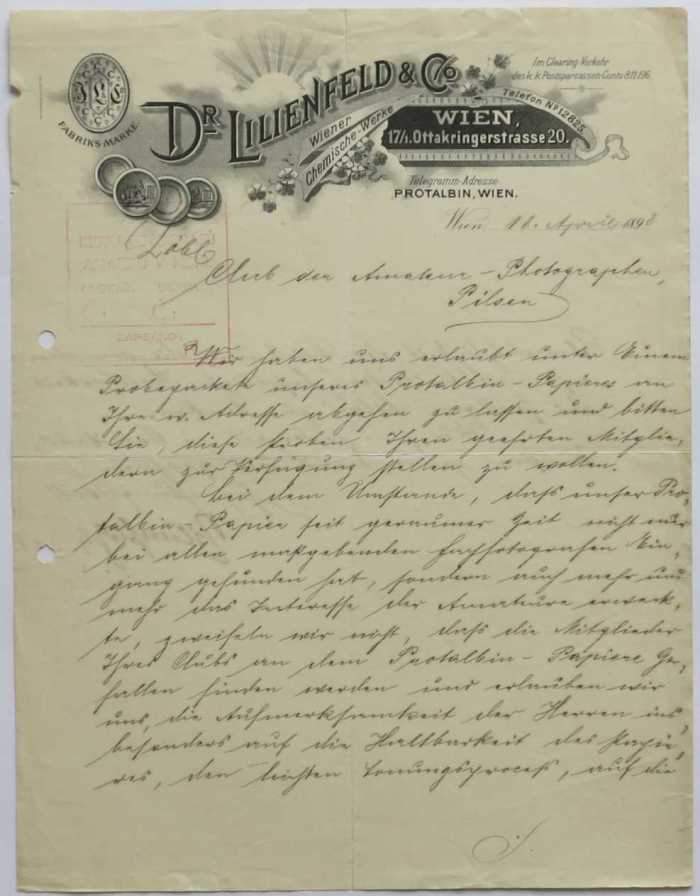 Im Clearing-Verkehr
des k. k. Postsparcassen-Conto 811.196.
DR. LILIENFELD & Co
Wiener
Chemische-Werke
WIEN,
17/1. Ottakringerstrasse 20.
Telefon No 12825.
FABRIKS-MARKE.
Telegramm-Adresse
PROTALBIN, WIEN.
Wien 18. April 1898
Löbl.
Club der Amateur-Photographen,
Pilsen
Wir haben uns erlaubt unter Einem
Probepacket unseres Protalbin-Papieres an
Ihre w. Adresse abgehen zu lassen und bitten
Sie, diese Proben Ihren geehrten Mitglie-
dern zur Verfügung stellen zu wollen.
Bei dem Umstande, daß unser Pro-
talbin-Papier seit geraumer Zeit nicht nur
bei allen maßgebenden Fachfotografen Ein-
gang gefunden hat, sondern auch mehr und
mehr das Interesse der Amateure erweck-
te, zweifeln wir nicht, daß die Mitglieder
Ihres Clubs an dem Protalbin-Papiere Ge-
fallen finden werden und erlauben wir
uns, die Aufmerksamkeit der Herren ins-
besonders auf die Haltbarkeit des Papie-
res, den leichten Tonungsproceß, auf die